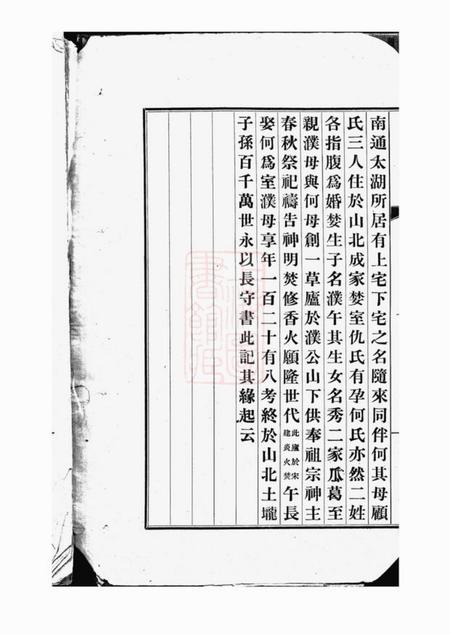 南通太湖所居有上宅下宅之名隨來同伴何其母顧
氏三人住於山北成家婪室仇氏有孕何氏亦然二姓
各指腹爲婚婪生子名濮午其生女名秀二家瓜葛至
親濮母與何母創一草廬於濮公山下供奉祖宗神主
春秋祭祀禱告神明焚修香火願隆世代此廬於宋建炎火焚午長
娶何爲室濮母享年一百二十有八考終於山北土壠
子孫百千萬世永以長守書此記其緣起云